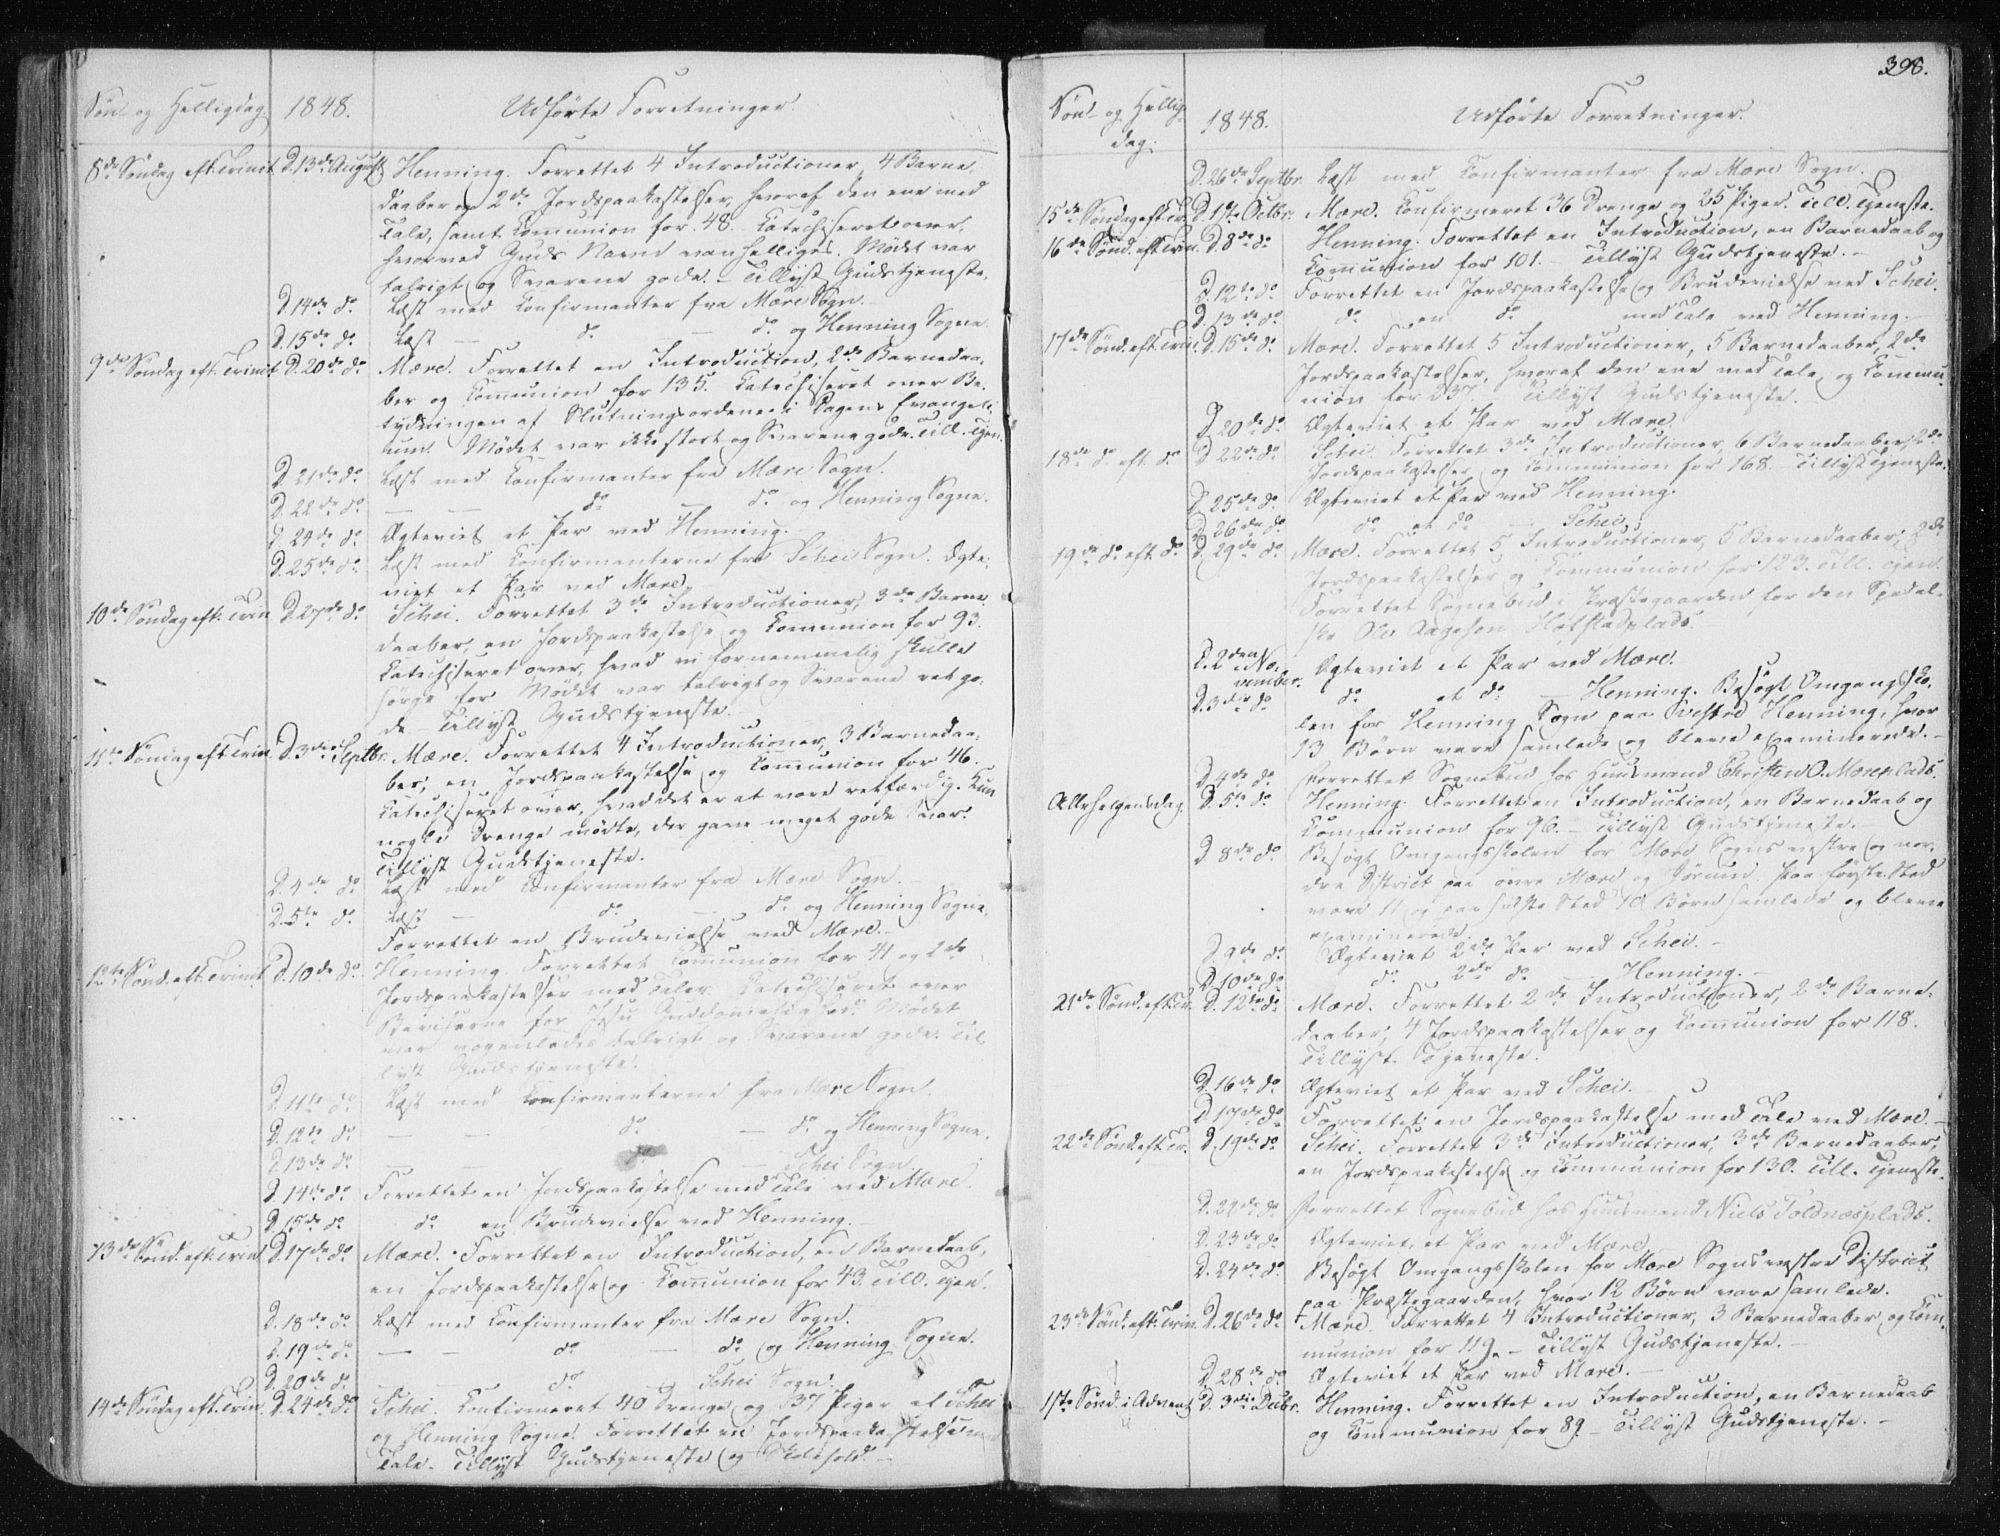 Søn- og Helligdag 1848. Udførte Forretninger.
8de Søndag eft. Trinit. D. 13de August Henning. Forrettet 4 Introductioner, 4 Barne-
daaber og 2de Jordspaakastelser, hvoraf den ene med
Tale, samt Communion for 48. Catechiseret over,
hvorved Guds Navn vanhelliges. Mødet var
talrigt og Svarene gode. – Tillyst Gudstjeneste.
D. 14de do. Læst med Confirmanter fra Mære Sogn.
D. 15de do. Læst — do. — do. og Henning Sogne.
9de Søndag eft. Trinit. D. 20de do. Mære. Forrettet en Introduction, 2de Barnedaa-
ber og Communion for 135. Catechiseret over Be-
tydningen af Slutningsordene i Dagens Evangeli-
um. Mødet var ikke stort og Svarene gode. Till. Tjen.
D. 21de do. Læst med Confirmanter fra Mære Sogn.
D. 22de do. — — do. — do. og Henning Sogne.
D. 24de do. Ægteviet et Par ved Henning.
D. 25de do. Læst med Confirmanterne fra Schei Sogn. Ægte-
viet et Par ved Mære.
10de Søndag eft. Trin. D. 27de do. Schei. Forrettet 3de Introductioner, 3de Barne-
daaber, en Jordspaakastelse og Communion for 93.
Catechiseret over, hvad vi fornemmelig skulle
sørge for. Mødet var talrigt og Svarene ret go-
de. Tillyst Gudstjeneste.
11te Søndag eft. Trin. D. 3die Septbr. Mære. Forrettet 4 Introductioner, 3 Barnedaa-
ber, en Jordspaakastelse og Communion for 46.
Catechiseret over, hvad det er at være retfærdig. Kun
nogle Drenge mødte, der gave meget gode Svar.
Tillyst Gudstjeneste.
D. 4de do. Læst med Confirmanter fra Mære Sogn.
D. 5te do. Læst — do. — do. og Henning Sogne.
Forrettet en Brudevielse ved Mære.
12te Sønd. eft. Trinit. D. 10de do. Henning. Forrettet Communion for 41 og 2de
Jordspaakastelser med Taler. Catechiseret over
Beviserne for Jesu Guddommelighed. Mødet
var nogenledes talrigt og Svarene gode. Til-
lyst Gudstjeneste.
D. 11te do. Læst med Confirmanterne fra Mære Sogn.
D. 12te do. — — do. — do. og Henning Sogne.
D. 13de do. — do. — Schei Sogn.
D. 14de do. Forrettet en Jordspaakastelse med Tale ved Mære.
D. 15de do. do. en Brudevielse ved Henning.
13de Sønd. eft. Trin. D. 17de do. Mære. Forrettet en Introduction, en Barnedaab,
en Jordspaakastelse og Communion for 43. Till. Tjen.
D. 18de do. Læst med Confirmanter fra Mære Sogn.
D. 19de do. — — do. — do. og Henning Sogne.
D. 20de do. — do. — Schei Sogn.
14de Søndag eft. Trin. D. 24de do. Schei. Confirmeret 40 Drenge og 37 Piger af Schei
og Henning Sogne. Forrettet en Jordspaakastelse med
Tale. Tillyst Gudstjeneste og Skolehold.
398.
Søn- og Hellig-
dag. 1848. Udførte Forretninger.
D. 26de Septbr. Læst med Confirmanter fra Mære Sogn.
15de Søndag eft. Tr. D. 1ste Octbr. Mære. Confirmeret 36 Drenge og 25 Piger. Till. Tjeneste.
16de Sønd. eft. Trin. D. 8de do. Henning. Forrettet en Introduction, en Barnedaab og
Communion for 101. – Tillyst Gudstjeneste. –
D. 12te do. Forrettet en Jordspaakastelse og Brudevielse ved Schei.
D. 13de do. do. en do. med Tale ved Henning. –
17de Sønd. eft. Trin. D. 15de do. Mære. Forrettet 5 Introductioner, 5 Barnedaaber, 2de
Jordspaakastelser, hvoraf den ene med Tale, og Commu-
nion for 237. – Tillyst Gudstjeneste.
D. 20de do. Ægteviet et Par ved Mære.
18de do. eft. do. D. 22de do. Schei. Forrettet 3de Introductioner, 6 Barnedaaber, 2de
Jordspaakastelser og Communion for 168. Tillyst Tjeneste.
D. 25de do. Ægteviet et Par ved Henning.
D. 26de do. do. et do. — Schei.
19de do. eft. do. D. 29de do. Mære. Forrettet 5 Introductioner, 5 Barnedaaber, 2de
Jordspaakastelser og Communion for 123. Till. Tjen.
Forrettet Sognebud i Præstegaarden for den Spedal-
ske Ole Aageson Hofstadplads.
D. 2den No-
vember. Ægteviet et Par ved Mære.
D. 3die do. do. et do. — Henning. Besøgt Omgangssko-
len for Henning Sogn paa Vestre Henning, hvor
13 Børn vare samlede og bleve examinerede. –
D. 4de do. Forrettet Sognebud hos Huusmand Christen O. Mæreplads.
Allehelgensdag. D. 5te do. Henning. Forrettet en Introduction, en Barnedaab og
Communion for 96. – Tillyst Gudstjeneste. –
D. 8de do. Besøgt Omgangsskolen for Mære Sogns vestre og nor-
dre District paa øvre Mære og . Paa første Sted
vare 11 og paa sidste Sted 10 Børn samlede og bleve
examinerede.
D. 9de do. Ægteviet 2de Par ved Schei. –
D. 10de do. do. 2de do. — Henning. –
21de Sønd. eft. Tr. D. 12te do. Mære. Forrettet 2de Introductioner, 2de Barne-
daaber, 4 Jordspaakastelser og Communion for 118.
Tillyst Tjeneste.
D. 16de do. Ægteviet et Par ved Schei.
D. 17de do. Forrettet en Jordspaakastelse med Tale ved Mære. –
22de Sønd. eft. Tr. D. 19de do. Schei. Forrettet 3de Introductioner, 3de Barnedaaber,
en Jordspaakastelse og Communion for 130. Till. Tjeneste.
D. 22de do. Forrettet Sognebud hos Huusmand Niels Toldnæsplads.
D. 23de do. Ægteviet et Par ved Mære.
D. 24de do. Besøgt Omgangsskolen for Mære Sogns vestre District
paa Præstegaarden, hvor 12 Børn vare samlede.
23de Sønd. eft. Trin. D. 26de do. Mære. Forrettet 4 Introductioner, 3 Barnedaaber og Com-
munion for 119. – Tillyst Gudstjeneste. –
D. 28de do. Ægteviet et Par ved Mære. –
1ste Sønd. i Advent D. 3die Decbr. Henning. Forrettet en Introduction, en Barnedaab
og Communion for 89. – Tillyst Gudstjeneste. –